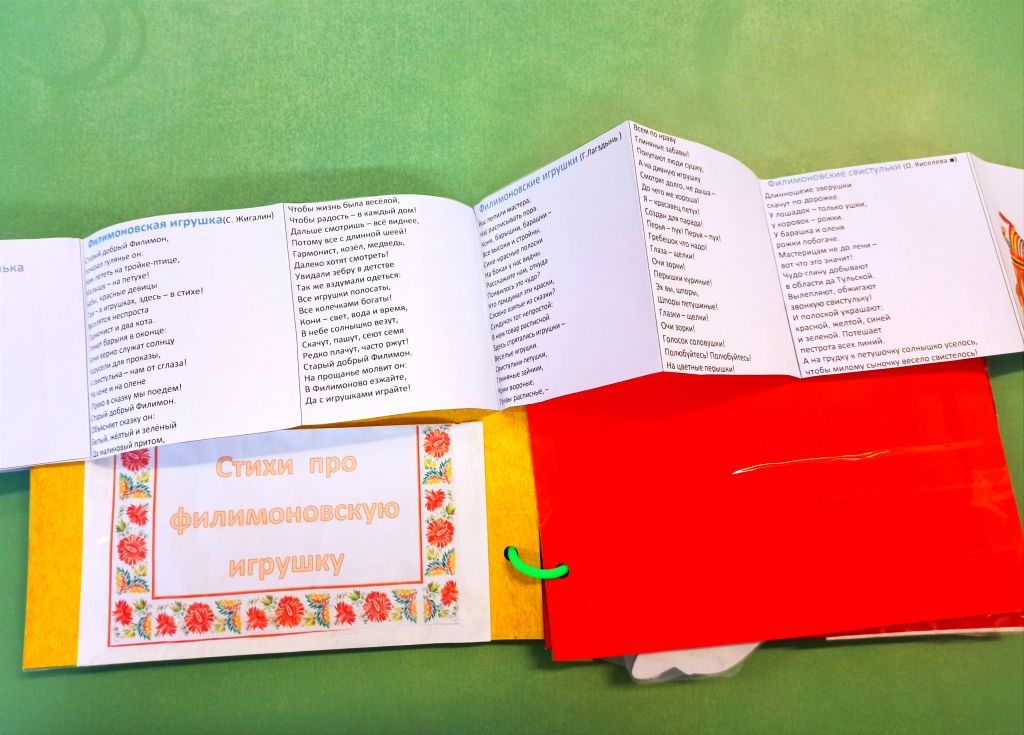 лька
Филимоновская игрушка(С. Жигалин)
Старый добрый Филимон,
Показал гулянье он:
лететь на тройке-птице,
Малышу – на петухе!
красные девицы
– в игрушках, здесь – в стихе!
Веселятся неспроста
Гармонист и два кота.
барыня в оконце:
Кони верно служат солнцу
проказы,
А свистулька – нам от сглаза!
На коне и на олене
Прямо в сказку мы поедем!
Старый добрый Филимон.
Объясняет сказку он:
Белый, жёлтый и зелёный
Да малиновый притом,
Чтобы жизнь была весёлой,
Чтобы радость – в каждый дом!
Дальше смотришь – всё виднее,
Потому все с длинной шеей!
Гармонист, козёл, медведь,
Далеко хотят смотреть!
Увидали зебру в детстве
Так же вздумали одеться:
Все игрушки полосаты,
Все колечками богаты!
Кони – свет, вода и время,
В небе солнышко везут,
Скачут, пашут, сеют семя
Редко плачут, часто ржут!
Старый добрый Филимон.
На прощанье молвит он:
В Филимоново езжайте,
Да с игрушками играйте!
Филимоновские игрушки (Г.Лагздынь )
Нас лепили мастера,
Нас расписывать пора.
Кони, барышни, барашни –
Все высоки и стройны,
Сине-красные полоски
На боках у нас видны.
Расскажите нам, откуда
Появилось это чудо?
Кто придумал эти краски,
Словно взятые из сказки?
Сундучок тот непростой:
В нем товар расписной.
Здесь спрятались игрушки –
Веселые игрушки.
Свистульки-петушки,
Глиняные зайчики,
Кони вороные,
Гривы расписные, –
Всем по нраву
Глиняные забавы!
Покупают люди сушку,
А на дивную игрушку
Смотрят долго, не дыша –
До чего же хороша!
Я – красавец петух!
Создан для парада!
Перья – пух! Перья – пух!
Гребешок что надо!
Глаза – щелки!
Очи зорки!
Перышки куриные!
Эх вы, шпоры,
Шпоры петушиные!
Глазки – щелки!
Очи зорки!
Голосок соловушки!
Полюбуйтесь! Полюбуйтесь!
На цветные перышки!
Филимоновские свистульки (О. Киселева ■)
Длинношеие зверушки
скачут по дорожке.
У лошадок – только ушки,
у коровок – рожки.
У барашка и оленя
рожки побогаче.
Мастерицам не до лени –
вот что это значит!
Чудо-глину добывают
в области да Тульской.
Вылепляют, обжигают
звонкую свистульку!
И полоской украшают:
красной, желтой, синей
и зеленой. Потешает
пестрота всех линий.
А на грудку к петушочку солнышко уселось,
чтобы милому сыночку весело свистелось!
Стихи про
филимоновскую
игрушку